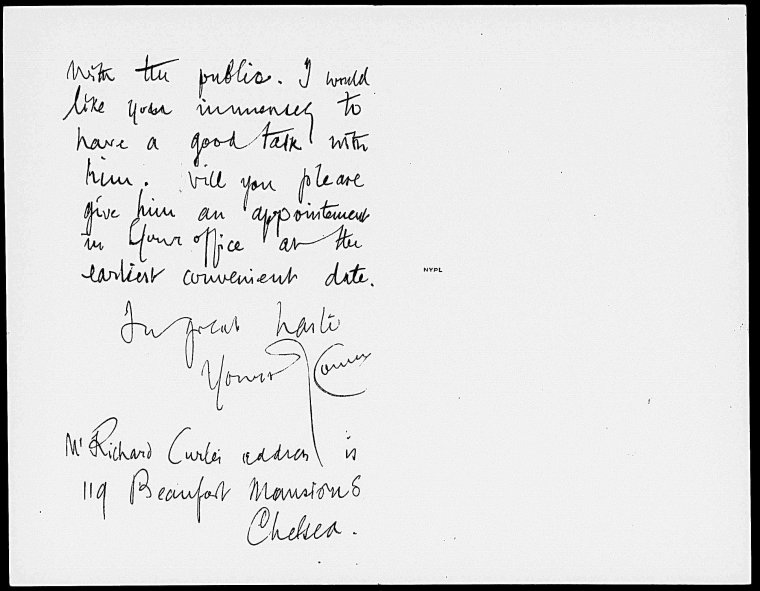 with the public. I would
like you immensely to
have a good talk with
him. Will you please
give him an appointement
in Your office at the
earliest convenient date.
NYPL
In great haste
Yours
Mr Richard Curle's address is
119 Beaufort Mansions
Chelsea.